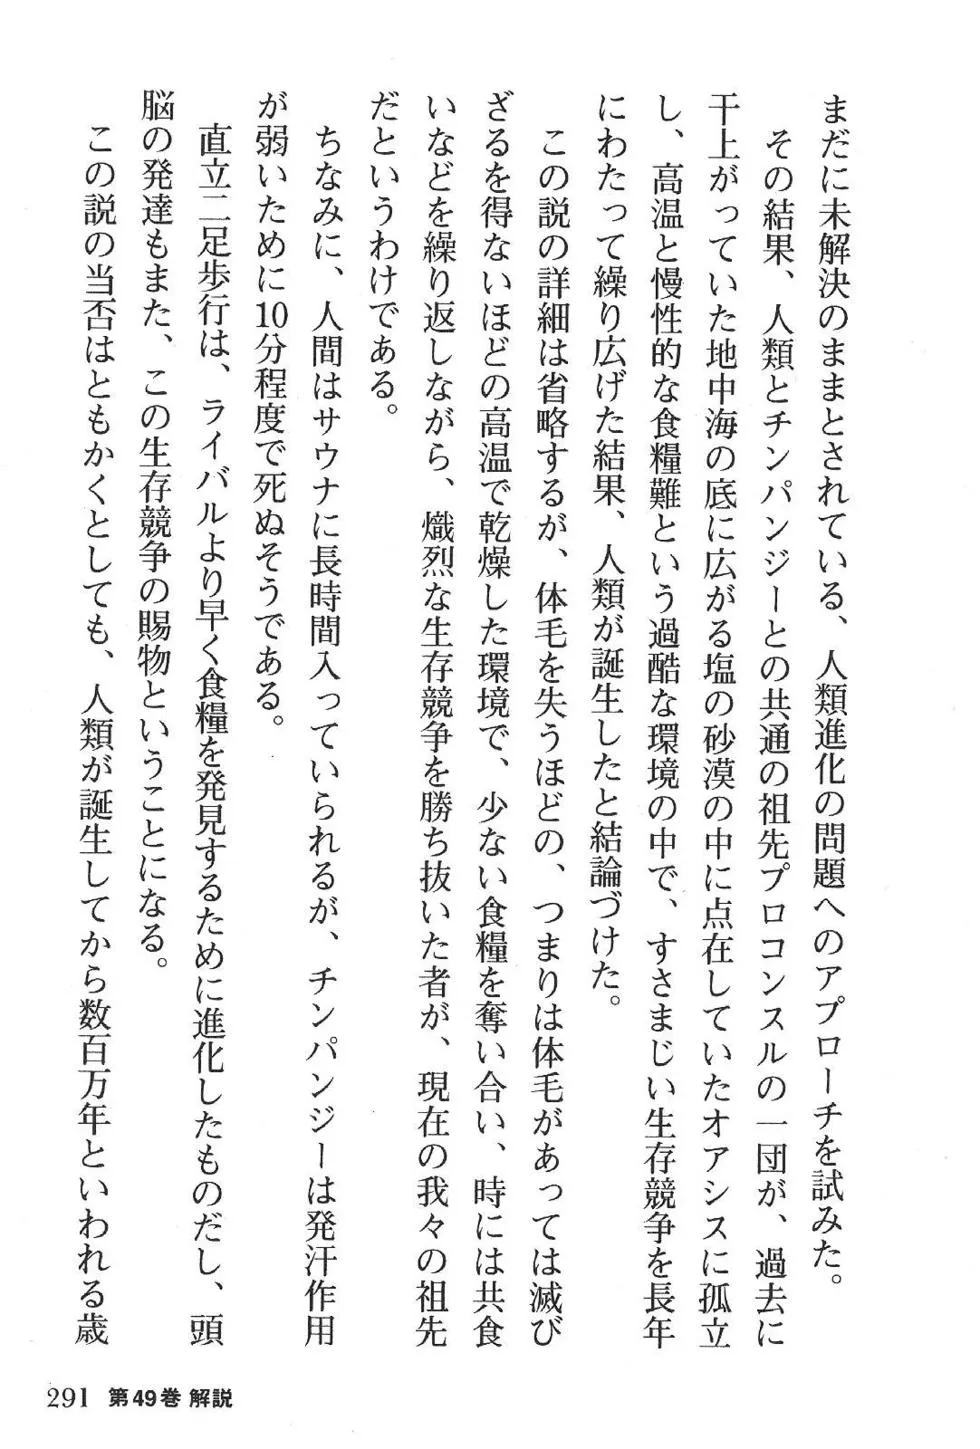 まだに未解決のままとされている、人類進化の問題へのアプローチを試みた。
その結果、人類とチンパンジーとの共通の祖先プロコンスルの一団が、過去に
干上がっていた地中海の底に広がる塩の砂漠の中に点在していたオアシスに孤立
し、高温と慢性的な食糧難という過酷な環境の中で、すさまじい生存競争を長年
にわたって繰り広げた結果、人類が誕生したと結論づけた。
この説の詳細は省略するが、体毛を失うほどの、つまりは体毛があっては滅び
ざるを得ないほどの高温で乾燥した環境で、少ない食糧を奪い合い、時には共食
いなどを繰り返しながら、熾烈な生存競争を勝ち抜いた者が、現在の我々の祖先
だというわけである。
ちなみに、人間はサウナに長時間入っていられるが、チンパンジーは発汗作用
が弱いために10分程度で死ぬそうである。
直立二足歩行は、ライバルより早く食糧を発見するために進化したものだし、頭
脳の発達もまた、この生存競争の賜物ということになる。
この説の当否はともかくとしても、人類が誕生してから数百万年といわれる歳
291 第49巻 解説